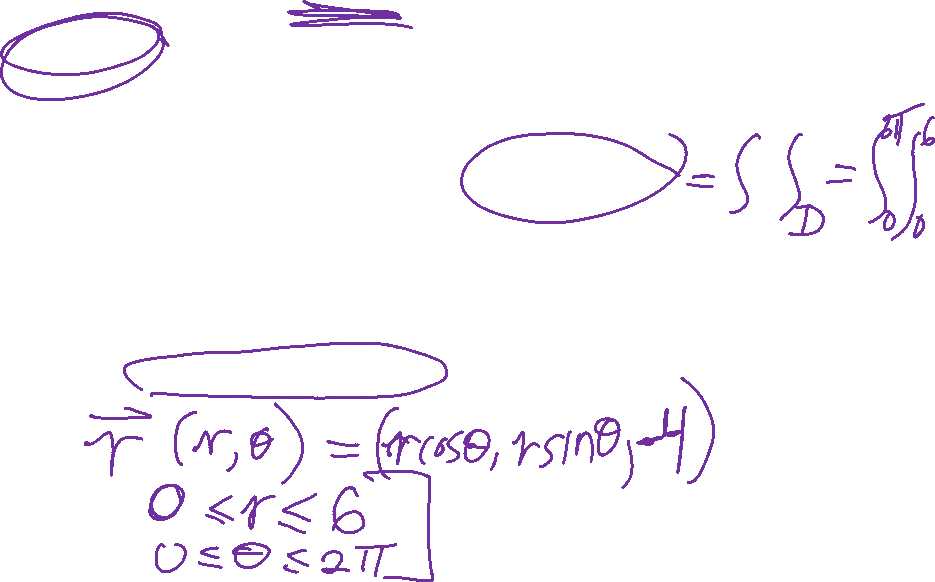 = ∫ ∫_D = ∫_0^π ∫_0^6
r⃗ (r, θ) = (r cosθ, r sinθ, -4)
0 ≤ r ≤ 6
0 ≤ θ ≤ 2π